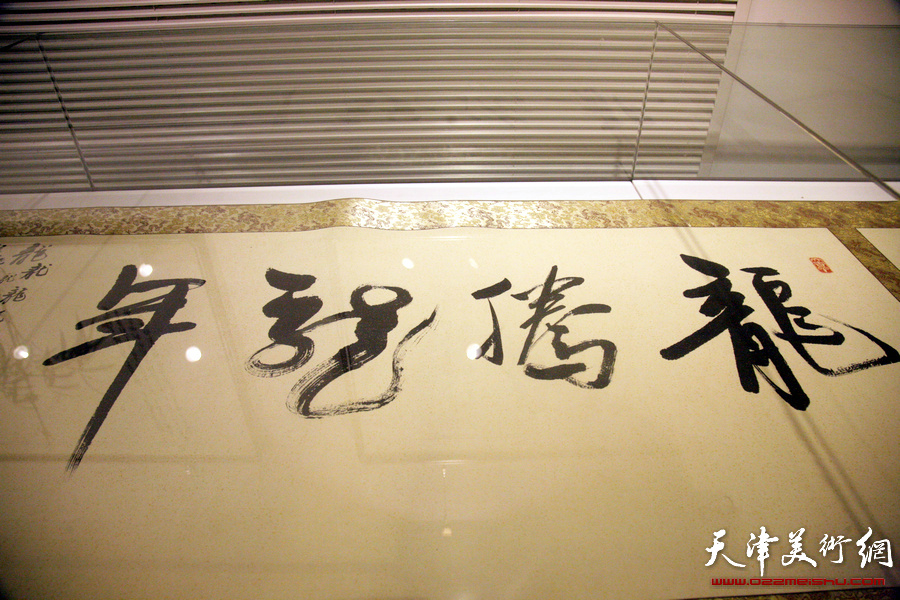 龍騰龍年
龍龍
龍
天津美術網
www.022meishu.com